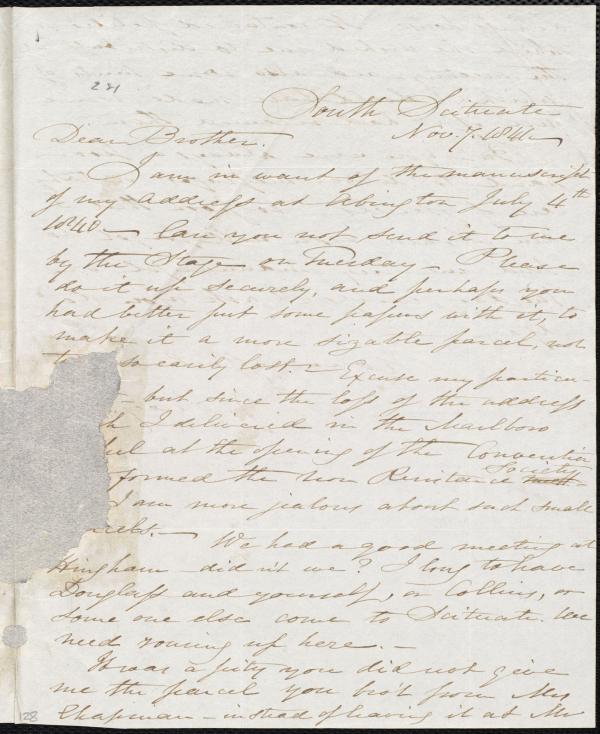 221
South Scituate
Nov. 7. 1841
Dear Brother.
I am in want of the manuscript
of my address at Abington July 4th
1840 — Can you not send it to me
by the Stage on Tuesday — Please
do it up securely, and perhaps you
had better put some papers with it, to
make it a more sizable parcel, not
so easily lost. — Excuse my particu-
— but since the loss of the address
h I delivered in the Marlboro
el at the opening of the Convention
formed the Non Resistance Society
I am more jealous about such small
— We had a good meeting at
Hingham — did n't we? I long to have
Douglass and yourself, or Collins, or
some one else come to Scituate. We
need rousing up here. —
It was a pity you did not give
me the parcel you bro't from Mrs
Chapman — instead of leaving it at Mr
28